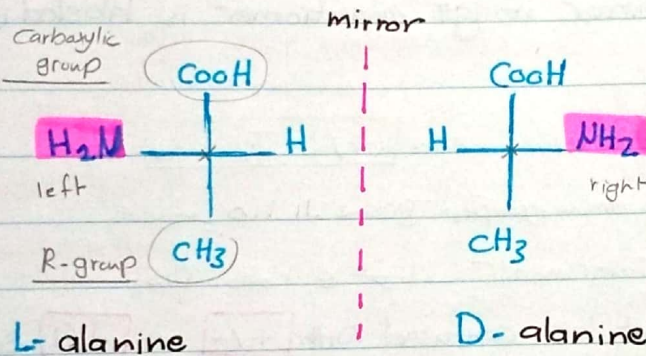 mirror
Carboxylic
group
COOH
COOH
H₂N
H
H
NH₂
left
right
R-group
CH₃
CH₃
L- alanine
D- alanine